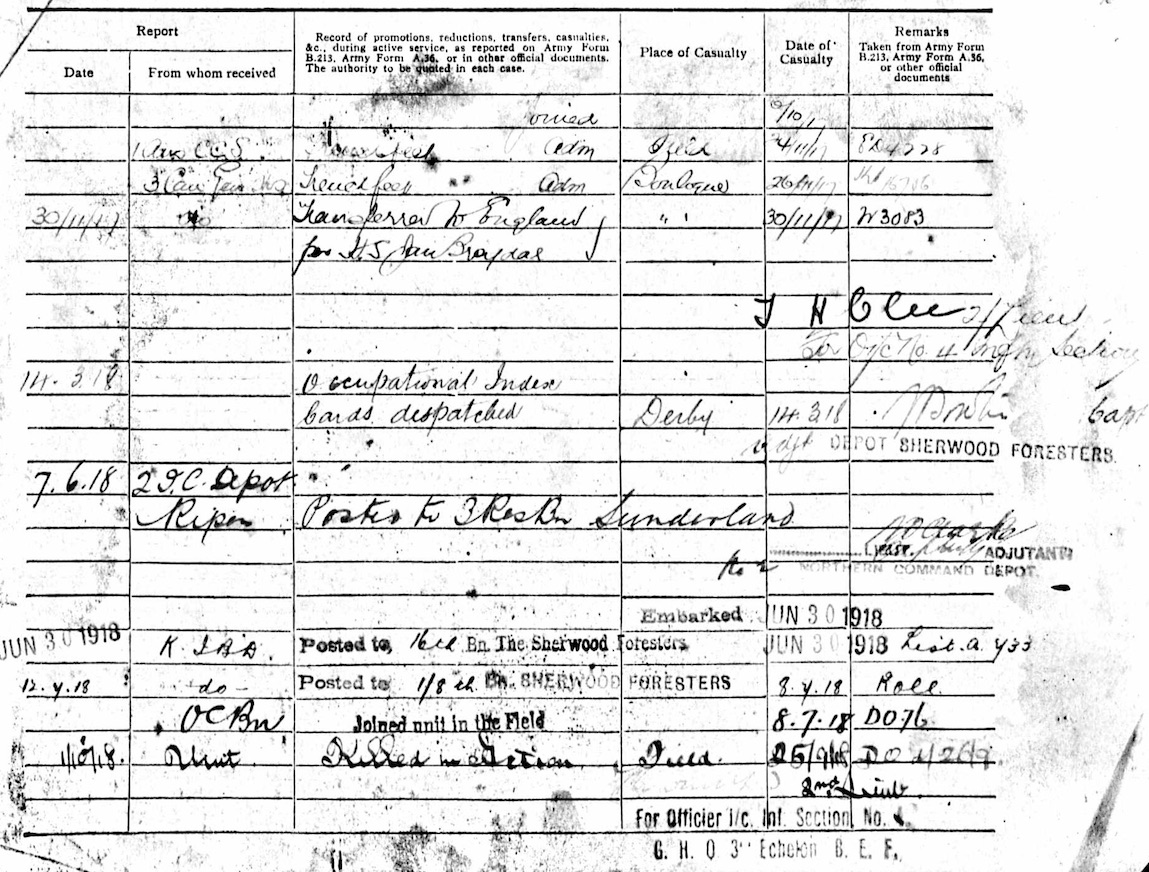 Report
Record of promotions, reductions, transfers, casualties,
&c., during active service, as reported on Army Form
B.213, Army Form A.36, or in other official documents.
The authority to be quoted in each case.
Place of Casualty
Date of
Casualty
Remarks
Taken from Army Form
B.213, Army Form A.36,
or other official
documents
Date
From whom received
Joined
C.C.S. Adm Field
3 Can Gen. Trench feet " " Adm Boulogne 26/11/17
30/11/17 Transferred to England " " 30/11/17 W3083
per H.S. Jan Breydel
J H Clee
for O/c No. 4 Section
14.3.18 Occupational Index
Cards despatched Derby 14 3 18 Capt
DEPOT SHERWOOD FORESTERS.
7.6.18 2 I.C. Depot
Ripon Posted to 3 Res Bn Sunderland
ADJUTANT
NORTHERN COMMAND DEPOT.
Embarked JUN 30 1918
JUN 30 1918 Posted to 16th Bn. The Sherwood Foresters JUN 30 1918 List. a. 433
12.7.18 -do- Posted to 1/8 th Bn. SHERWOOD FORESTERS 8.7.18 Roll
OC Bn Joined unit in the Field 8.7.18 DO76
1/10/18. Unit Killed in Action Field. 25/9/18
2nd Lieut.
For Officier i/c. Inf. Section, No. 4
G. H. Q 3rd Echelon B. E. F.